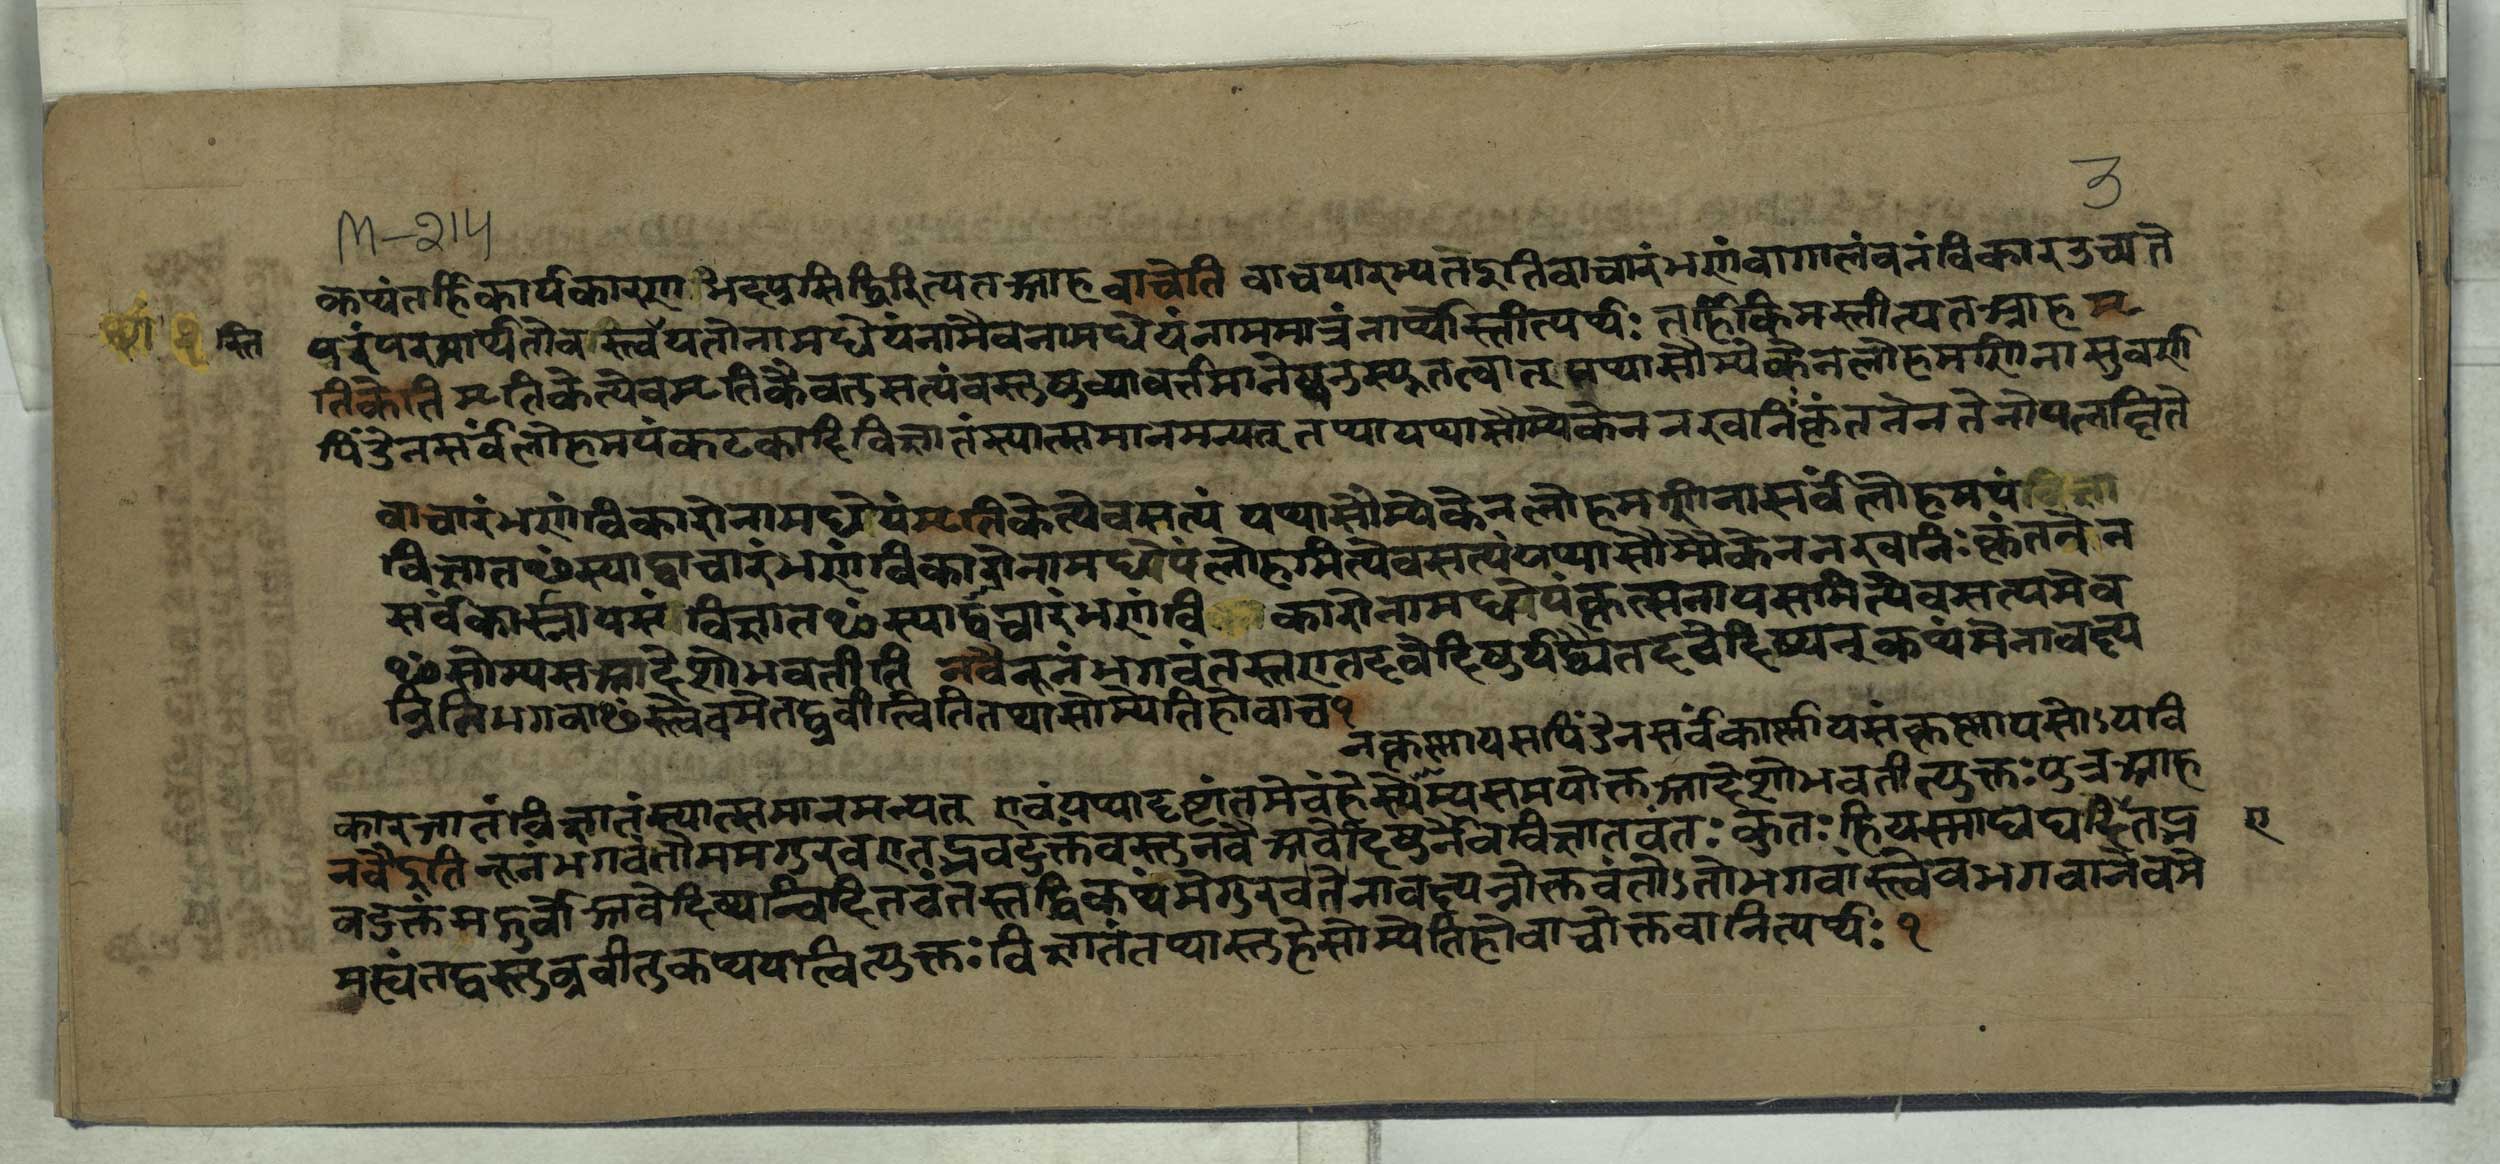 M-214
3
कथं तर्हि कार्यकारणभेदप्रसिद्धिरित्यत आह वाचेति वाचयारभ्यत इति वाचारंभणं वागालंबनं विकार उच्यते
परं परमार्थतो वस्त्वे यतो नामधेयं नामैव नामधेयं नाममात्रं नार्थोस्तीत्यर्थः तर्हि किमस्तीत्यत आह मृ
स्ति
त्तिकेति मृत्तिकेत्येव मृत्तिकैव तु सत्यं वस्तुषु व्यावर्तमानेष्वनुस्यूतत्वात् यथा सौम्यैकेन लोहमणिना सुवर्ण
पिंडेन सर्वं लोहमयं कटकादि विज्ञातं स्यात्समानमन्यत् तथा यथा सौम्यैकेन नखनिकृंतनेन तेनोपलक्षिते
वाचारंभणं विकारो नामधेयं मृत्तिकेत्येव सत्यं यथा सौम्यैकेन लोहमणिना सर्वं लोहमयं
विज्ञातꣳ स्याद्वाचारंभणं विकारो नामधेयं लोहमित्येव सत्यं यथा सौम्यैकेन नखनिःकृंतनेन
सर्वं कार्ष्णायसं विज्ञातꣳ स्याद्वाचारंभणं विकारो नामधेयं कृत्स्नायसमित्येव सत्यमेव
ꣳ सौम्य स आदेशो भवतीति न वै नूनं भगवंतस्त एतदवेदिषुर्यद्ध्येतदवेदिष्यन् कथं मे नावक्ष्य
न्निति भगवाꣳस्त्वेव मे तद्ब्रवीत्विति तथा सोम्येति होवाच १
न कृष्णायसपिंडेन सर्वं कार्ष्णायसं कृष्णायसोऽयवि
कारजातं विज्ञातं स्यात्समानमन्यत् एवं यथा दृष्टांतमेवं हे सौम्य स मयोक्त आदेशो भवतीत्युक्तः पुत्र आह
न वै इति नूनं भगवंतो मम गुरव एतद्भवदुक्तं वस्तु न वै अवेदिषुर्नैव विज्ञातवंतः कुतः हि यस्माद्यद्यर्हि तद्भ
ए
वदुक्तं मद्गुरवो अवेदिष्यन्विदितवंतस्तर्हि कथं मे गुरवे ते नावक्ष्यन्नोक्तवंतोऽतो भगवांस्त्वेव भगवानेव मे
मह्यं तद्वस्तु ब्रवीतु कथयत्वित्युक्तः पितातं तथास्तु हे सौम्येति होवाचोक्तवानित्यर्थः १